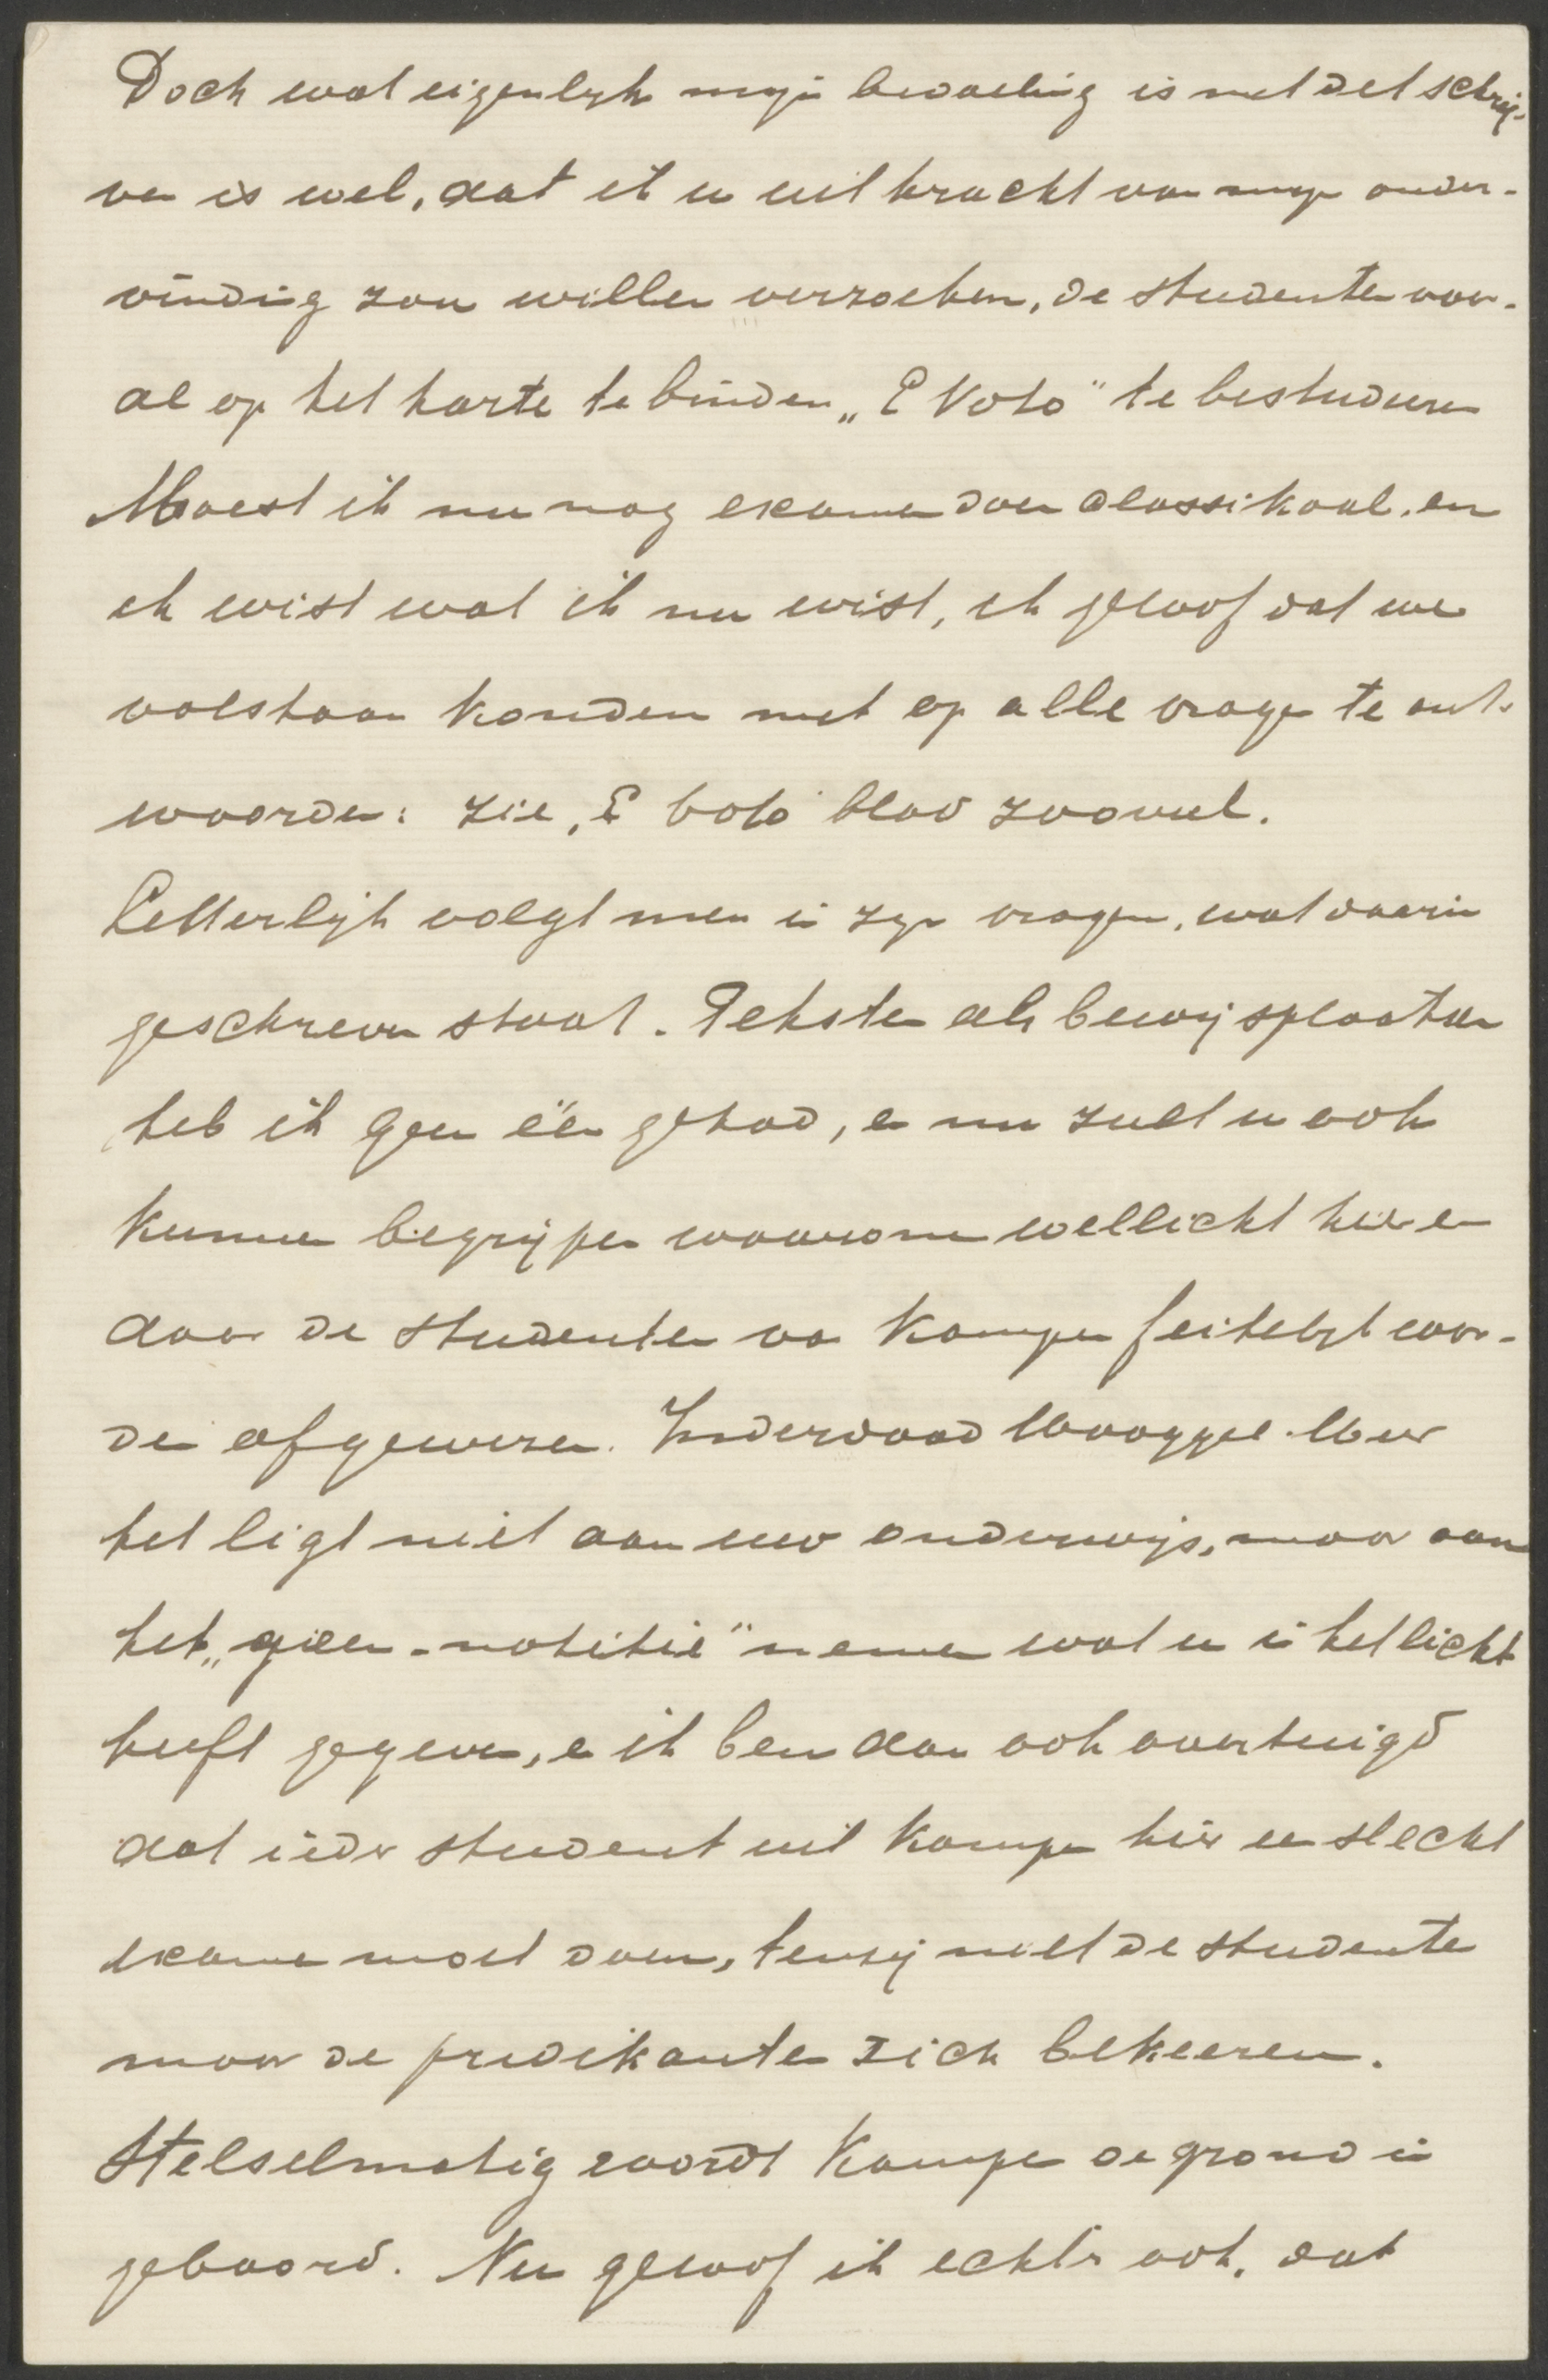 Doch wat eigenlijk mijn bedoeling is met dit schrij-
ven is wel, dat ik u uit kracht van mijn onder-
vinding zou willen verzoeken, de studenten voor-
al op het harte te binden „E Voto" te bestudeeren
Moest ik nu nog examen doen classikaal, en
ik wist wat ik nu wist, ik geloof dat we
volstaan konden met op alle vragen te ant-
woorden: zie, E voto blad zooveel.
Letterlijk volgt men in zijn vragen, wat daarin
geschreven staat. Teksten als bewijsplaatsen
heb ik geen één gehad, en nu zult u ook
kunnen begrijpen waarom wellicht hier en
daar de studenten van Kampen feitelijk wor-
den afgewezen. Inderdaad Hooggel. Heer
het ligt niet aan uw onderwijs, maar aan
het „geen-notitie" nemen wat u in het licht
heeft gegeven, en ik ben dan ook overtuigd
dat ieder student uit Kampen hier een slecht
examen moet doen, tenzij niet de studenten
maar de predikanten zich bekeeren.
Stelselmatig wordt Kampen de grond in
geboord. Nu geloof ik echter ook, dat